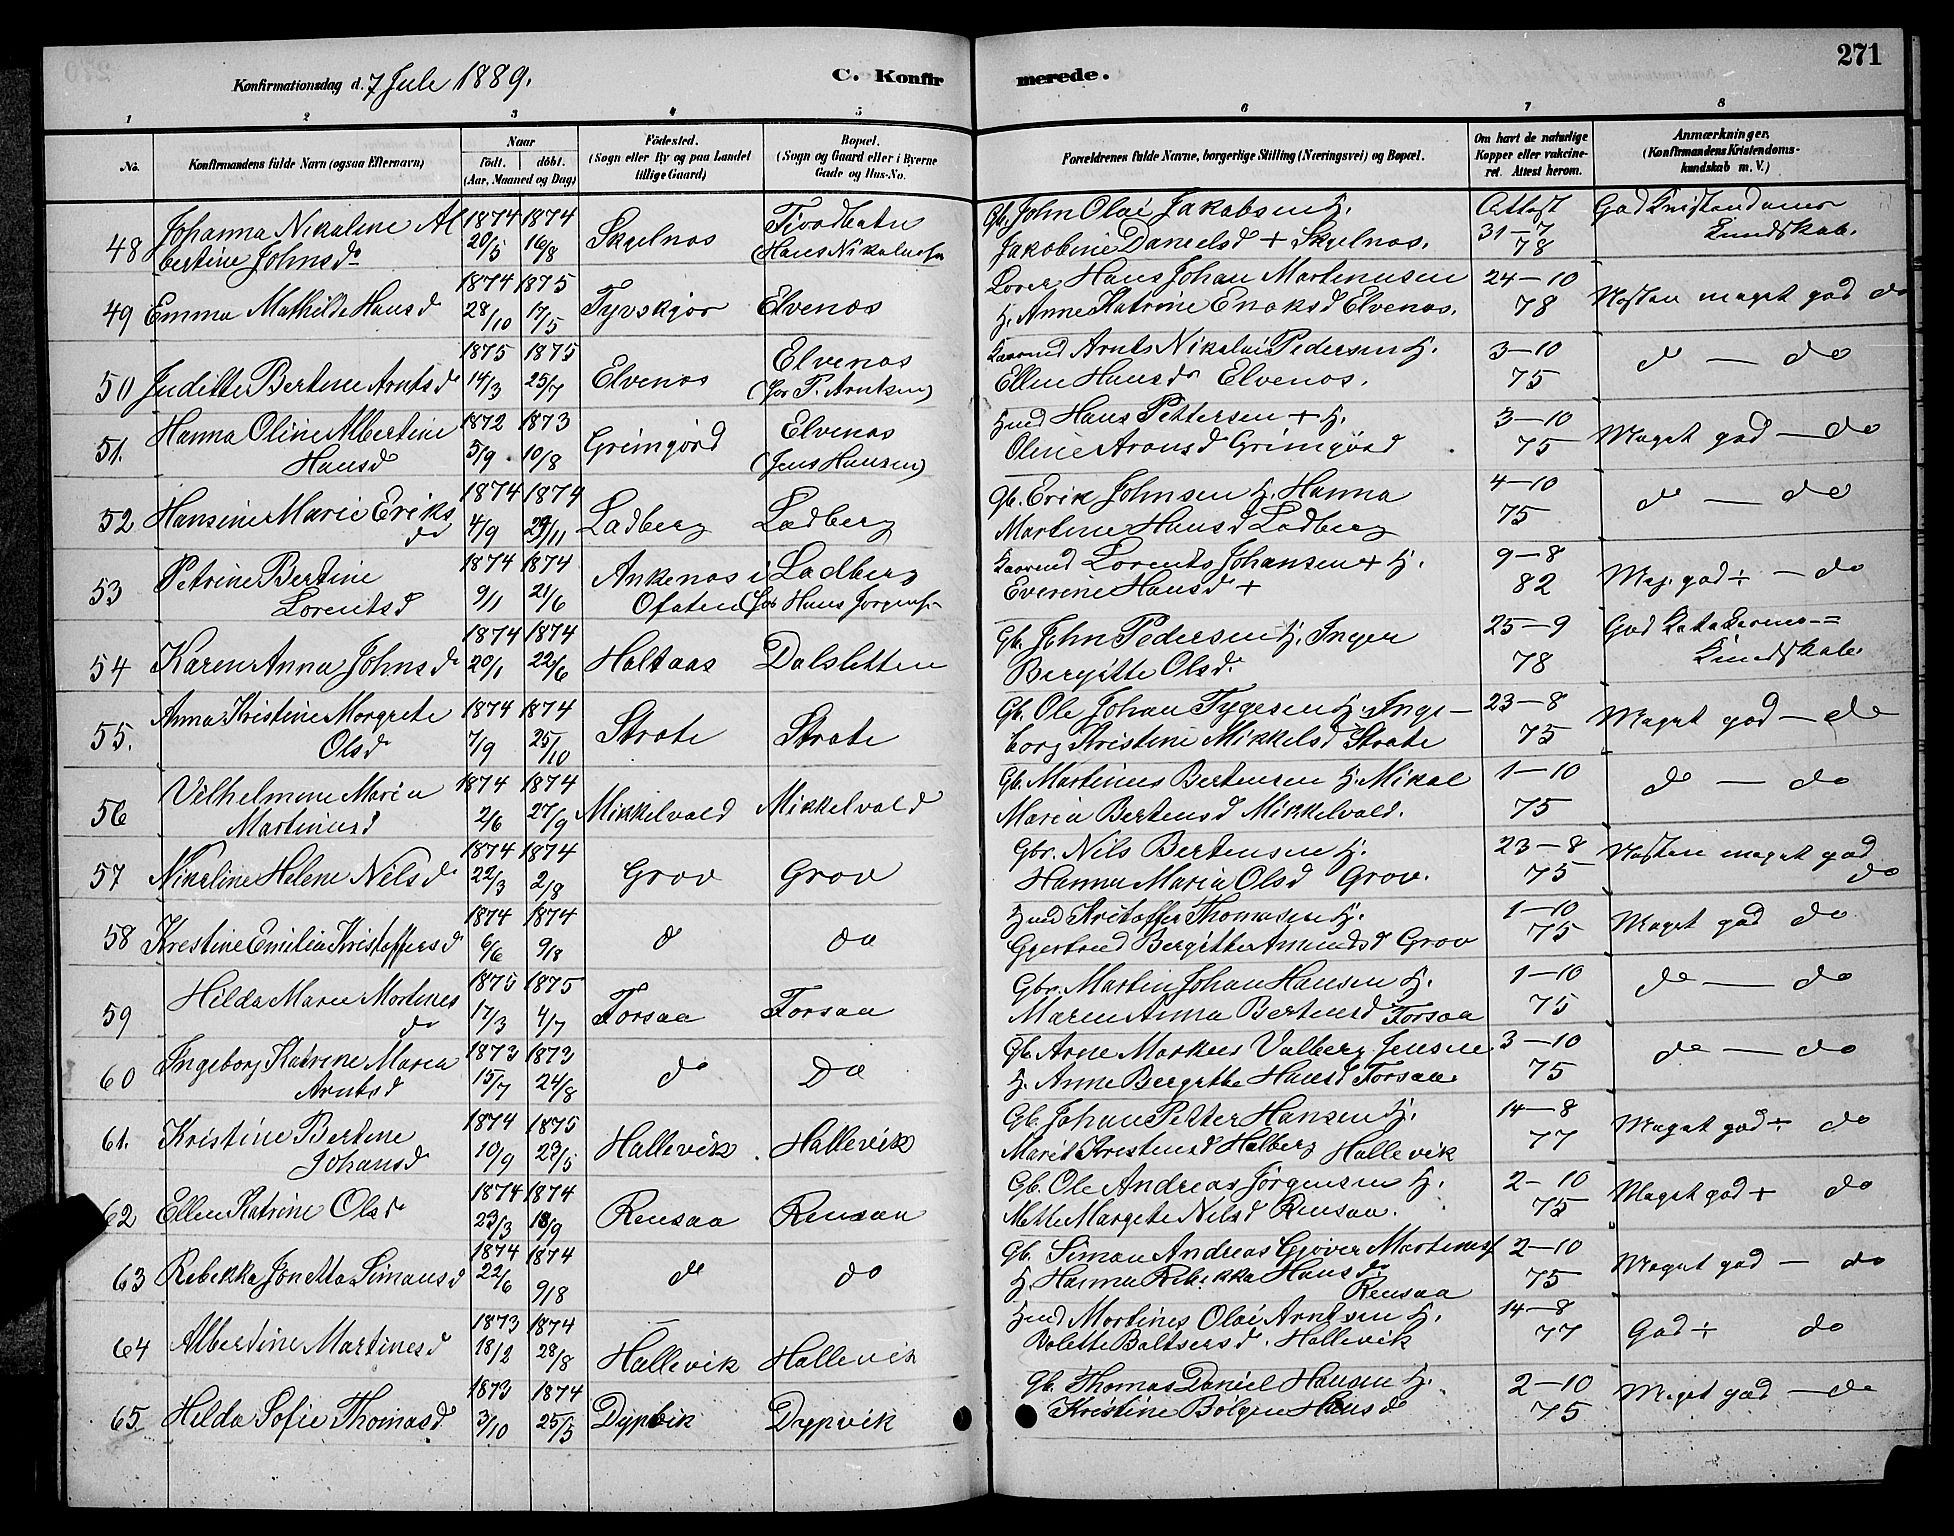 271
Konfirmationsdag d. 7 Juli 1889.
C. Konfirmerede.
1 2 3 4 5 6 7 8
No.
Konfirmandens fulde Navn (ogsaa Efternavn)
Naar
født. døbt.
(Aar, Maaned og Dag)
Fødested.
(Sogn eller By og paa Landet
tillige Gaard)
Bopæl.
(Sogn og Gaard eller i Byerne
Gade og Hus-No.
Forældrenes fulde Navne, borgerlige Stilling (Næringsvei) og Bopæl.
Om havt de naturlige
Kopper eller vakcine-
ret. Attest herom.
Anmærkninger,
(Konfirmandens Kristendoms-
kundskab m. V.)
48 Johanna Nikoline Al
bertine Johnsd 1874 20/5 1874 16/8 Skjelnæs
(Hans Nikolai
Gb. John Olai Jakobsen H.
Jakobine Danielsd + Skjelnæs. Attest 31-7 78 God Kristendoms
Kundskab.
49 Emma Mathilde Hansd 1874 28/10 1875 17/5 Tyvskjær Elvenæs
Hans Johan Martinusen
H. Anne Katrine Enoksd Elvenæs. 24-10 78 Næsten meget god do
50 Juditte Bertine Arntsd 1875 14/3 1875 25/7 Elvenæs Elvenæs
(for P. Arntsen)
Arnts Nikolai Pedersen H.
Ellen Hansd Elvenæs. 3-10 75 do — do
51. Hanna Oline Albertine
Hansd 1872 5/9 1873 10/8 Grimgjord Elvenæs
(Jens Hansen)
Hmd Hans Pettersen + H.
Oline Aronsd Grimgjord 3-10 75 Meget god — do
52 Hansine Marie Eriks
d 1874 4/9 1874 29/11 Ladberg Ladberg
Gb. Erik Johnsen H. Hanna
Martine Hansd Ladberg 4-10 75 do — do
53 Petrine Bertine
Lorentsd 1874 9/1 1874 21/6 Ankenæs i
Ofoten Ladberg
(for Hans Jørgens
Lorents Johansen + H.
Everine Hansd + 9-8 82 Meg. god ÷ — do
54 Karen Anna Johnsd 1874 20/1 1874 22/6 Holtaas Dalsletten
Gb. John Pedersen H. Inger
Bergitte Olsd. 25-9 78 God
Kundskab
55. Anna Kristine Morgrete
Olsd 1874 7/9 1874 25/10 Strate Strate
Gb. Ole Johan Tygesen H. Inge-
borg Kristine Mikkelsd Strate 23-8 75 Meget god — do
56 Vilhelmine Maria
Martinusd 1874 2/6 1874 27/9 Mikkelvold Mikkelvold
Gb. Martinus Bertensen H. Mikal
Maria Bertensd Mikkelvold. 1-10 75 do — do
57 Nikoline Helene Nilsd 1874 22/3 1874 2/8 Grov Grov
Gbr. Nils Bertensen H.
Hanna Maria Olsd Grov. 23-8 75 Næsten meget god
do
58 Kristine Emilie Kristoffersd 1874 6/6 1874 9/8 do do
Hmd Kristoffer Thomasen H.
Gjertrud Bergitte Amundsd Grov 1-10 75 Meget god do
59 Hilda Maren Mortines
d 1875 17/3 1875 4/7 Forsaa Forsaa
Gbr. Martin Johan Hansen H.
Maren Anna Bertinsd Forsaa 1-10 75 do — do
60 Ingeborg Katrine Maria
Arntsd 1873 15/7 1873 24/8 do Do
Gb. Arne Markus Valberg Jensen
H. Anne Bergitte Hansd Forsaa 3-10 75 do — do
61. Kristine Bertine
Johansd 1874 10/9 1875 23/5 Hallevik. Hallevik
Gb. Johan Petter Hansen H.
Marit Kristensd Halberg Hallevik 14-8 77 Meget god ÷ do
62 Ellen Katrine Olsd 1874 23/3 1874 18/9 Rensaa Rensaa
Gb. Ole Andreas Jørgensen H.
Mette Margrete Nilsd Rensaa. 2-10 75 Meget god + do
63 Rebekka Jonetta Simonsd 1874 22/6 1874 9/8 do do
Gb. Simon Andreas Gjøver Martines
H. Hanna Rebekka Hansd
Rensaa 2-10 75 Meget god — do
64 Albertine Martinesd 1873 18/2 1874 28/8 Hallevik Hallevik
Hmd Mortines Olai Arntsen H.
Volette Baltsersd. Hallevik 14-8 77 God ÷ do
65 Hilda Sofie Thomasd 1873 3/10 1874 25/5 Dypvik Dypvik
Gb. Thomas Daniel Hansen H.
Kristine Bølgen Hansd 2-10 75 Meget god — do